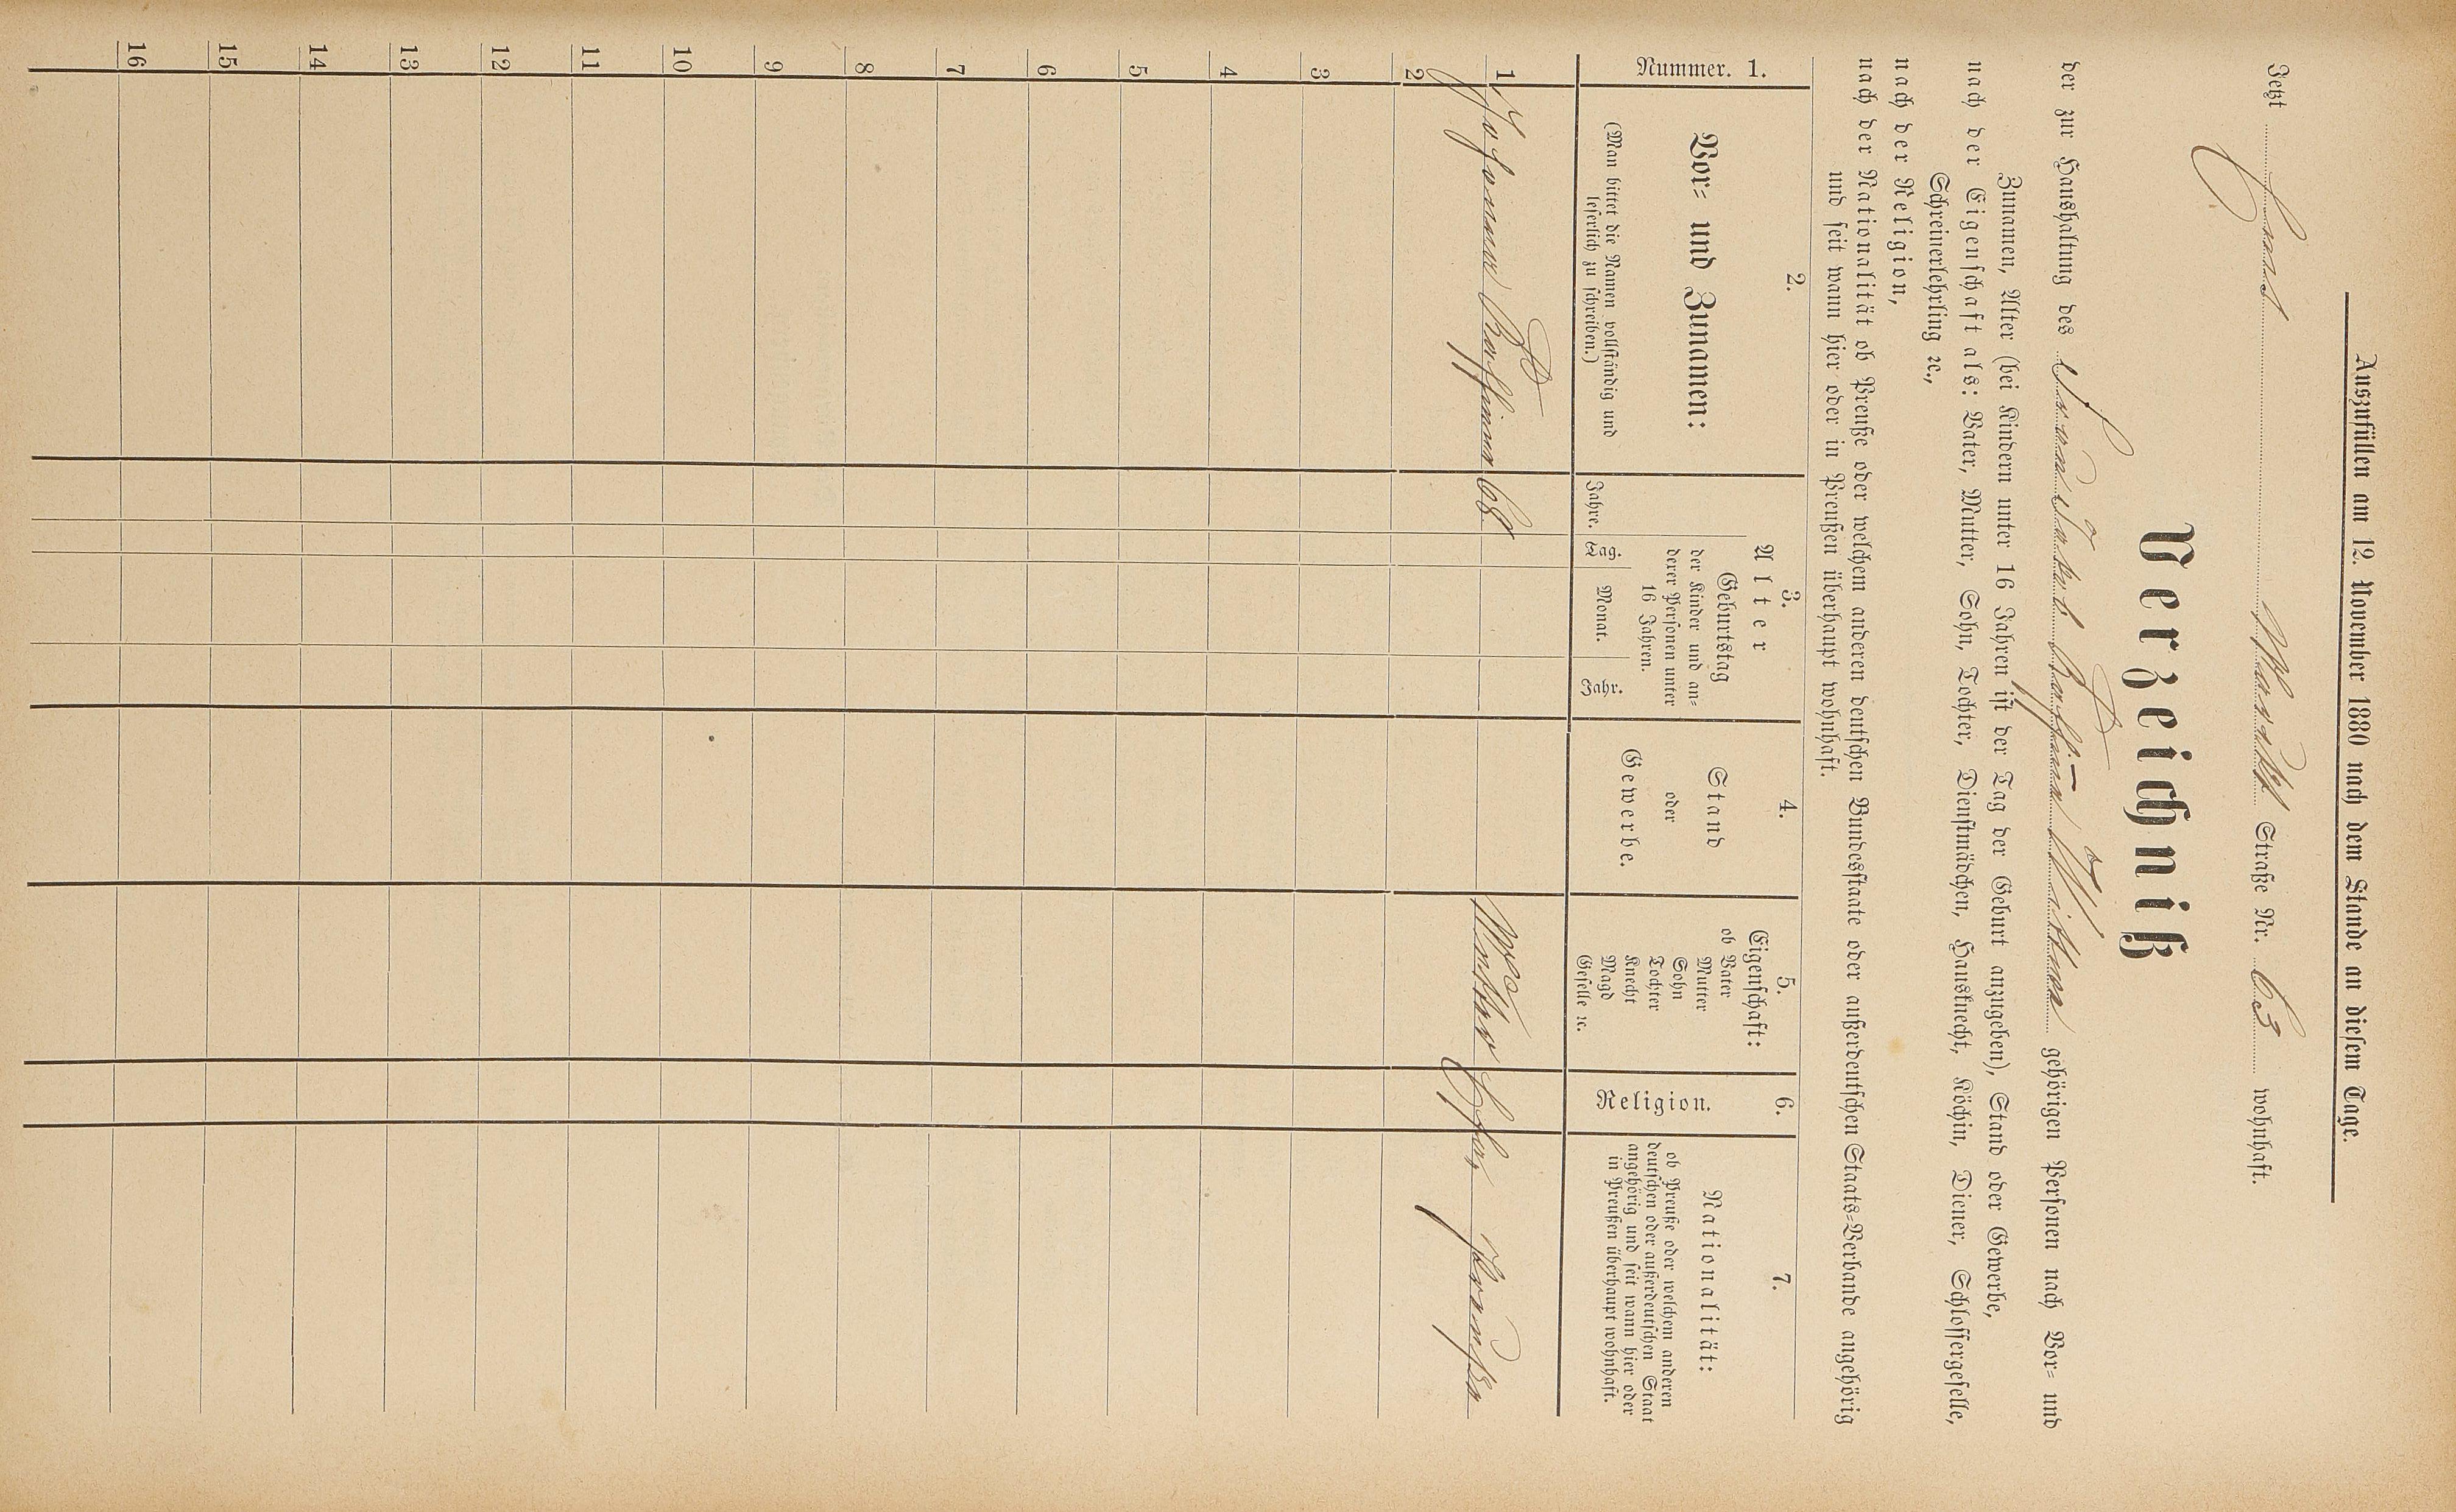 Auszufüllen am 12. November 1880 nach dem Stande an diesem Tage.
Jetzt Markt Straße Nr. 63 wohnhaft.
Verzeichniß
der zur Haushaltung des Jakob Wittwe gehörigen Personen nach Vor- und
Zunamen, Alter (bei Kindern unter 16 Jahren ist der Tag der Geburt anzugeben), Stand oder Gewerbe,
nach der Eigenschaft als: Vater, Mutter, Sohn, Tochter, Dienstmädchen, Hausknecht, Köchin, Diener, Schlossergeselle,
Schreinerlehrling ꝛc.,
nach der Religion,
nach der Nationalität ob Preuße oder welchem anderen deutschen Bundesstaate oder außerdeutschen Staats-Verbande angehörig
und seit wann hier oder in Preußen überhaupt wohnhaft.
Nummer. 1.
2.
Vor- und Zunamen:
(Man bittet die Namen vollständig und
leserlich zu schreiben.)
3.
Alter
Jahre.
Geburtstag
der Kinder und an-
derer Personen unter
16 Jahren.
Tag.
Monat.
Jahr.
4.
Stand
oder
Gewerbe.
5.
Eigenschaft:
ob Vater
Mutter
Sohn
Tochter
Knecht
Magd
Geselle ꝛc.
6.
Religion.
7.
Nationalität:
ob Preuße oder welchem anderen
deutschen oder außerdeutschen Staat
angehörig und seit wann hier oder
in Preußen überhaupt wohnhaft.
1 Johanna 68 Mutter Preuße
2
3
4
5
6
7
8
9
10
11
12
13
14
15
16